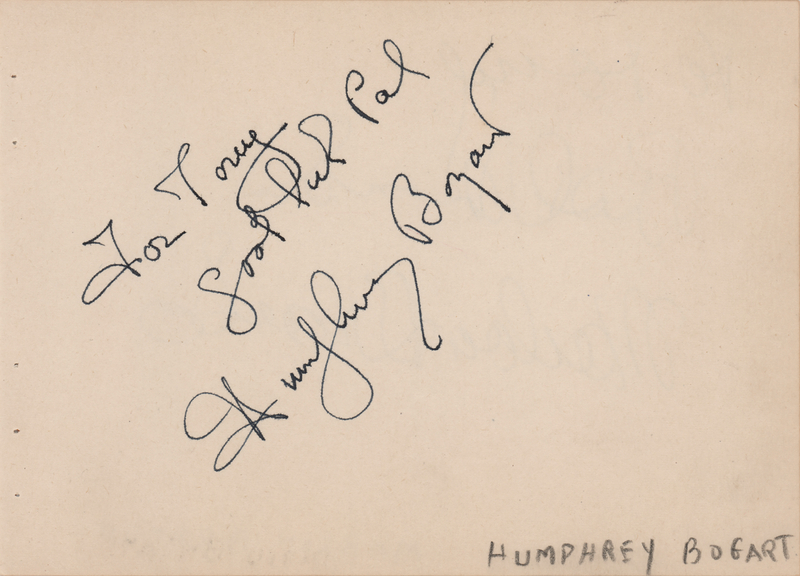 For Tony
Good luck Pal
Humphrey Bogart
HUMPHREY BOGART